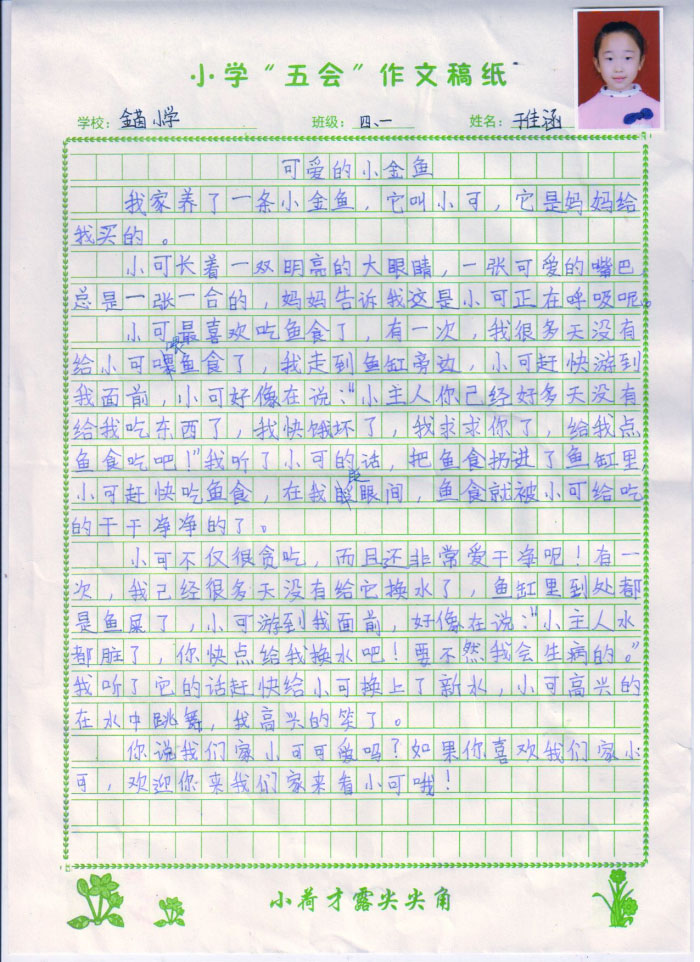 小学“五会”作文稿纸
学校： 金菌小学 班级： 四、一 姓名： 于佳涵
可爱的小金鱼
我家养了一条小金鱼，它叫小可，它是妈妈给
我买的。
小可长着一双明亮的大眼睛，一张可爱的嘴巴，
总是一张一合的，妈妈告诉我这是小可正在呼吸呢。
小可最喜欢吃鱼食了，有一次，我很多天没有
给小可喂鱼食了，我走到鱼缸旁边，小可赶快游到
我面前，小可好像在说：“小主人你已经好多天没有
给我吃东西了，我快饿坏了，我求求你了，给我点
鱼食吃吧！”我听了小可的话，把鱼食扔进了鱼缸里，
小可赶快吃鱼食，在我眨眼间，鱼食就被小可给吃
的干干净净的了。
小可不仅很贪吃，而且还非常爱干净呢！有一
次，我已经很多天没有给它换水了，鱼缸里到处都
是鱼屎了，小可游到我面前，好像在说：“小主人水
都脏了，你快点给我换水吧！要不然我会生病的。”
我听了它的话赶快给小可换上了新水，小可高兴的
在水中跳舞，我高兴的笑了。
你说我们家小可可爱吗？如果你喜欢我们家小
可，欢迎你来我们家来看小可哦！
小荷才露尖尖角